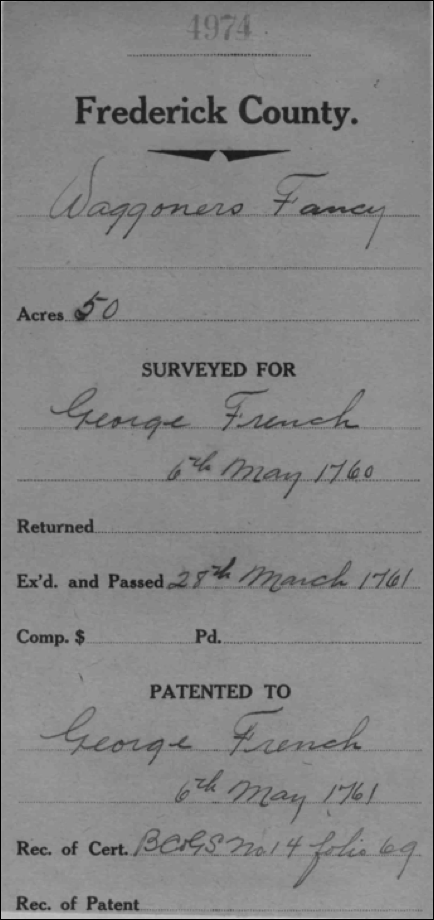 4974
Frederick County.
Waggoners Fancy
Acres 50
SURVEYED FOR
George French
6th May 1760
Returned
Ex'd. and Passed 28th March 1761
Comp. $ Pd.
PATENTED TO
George French
6th May 1761
Rec. of Cert. BC&GS No 14 folio 69
Rec. of Patent